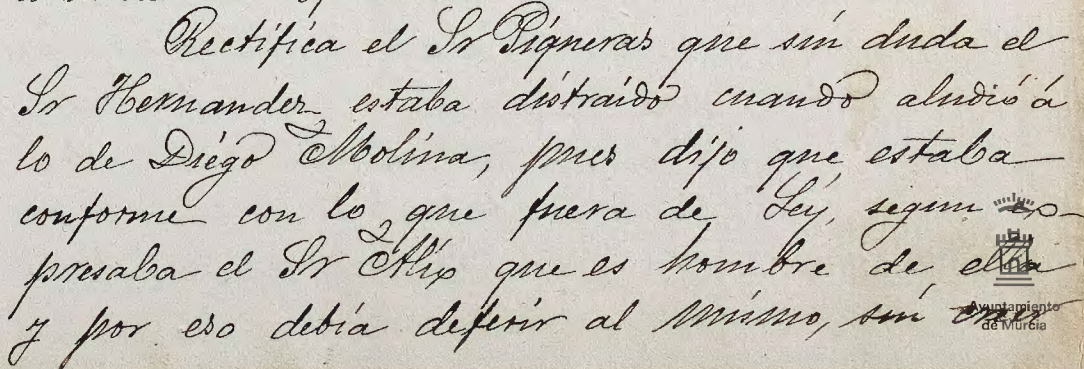 Rectifica el Sr Piqueras que sin duda el
Sr Hernandez estaba distraido cuando aludió á
lo de Diego Molina, pues dijo que estaba
conforme con lo que fuera de Ley, segun ex-
presaba el Sr Alix que es hombre de ella
y por eso debia deferir al mismo, sin
Ayuntamiento
de Murcia